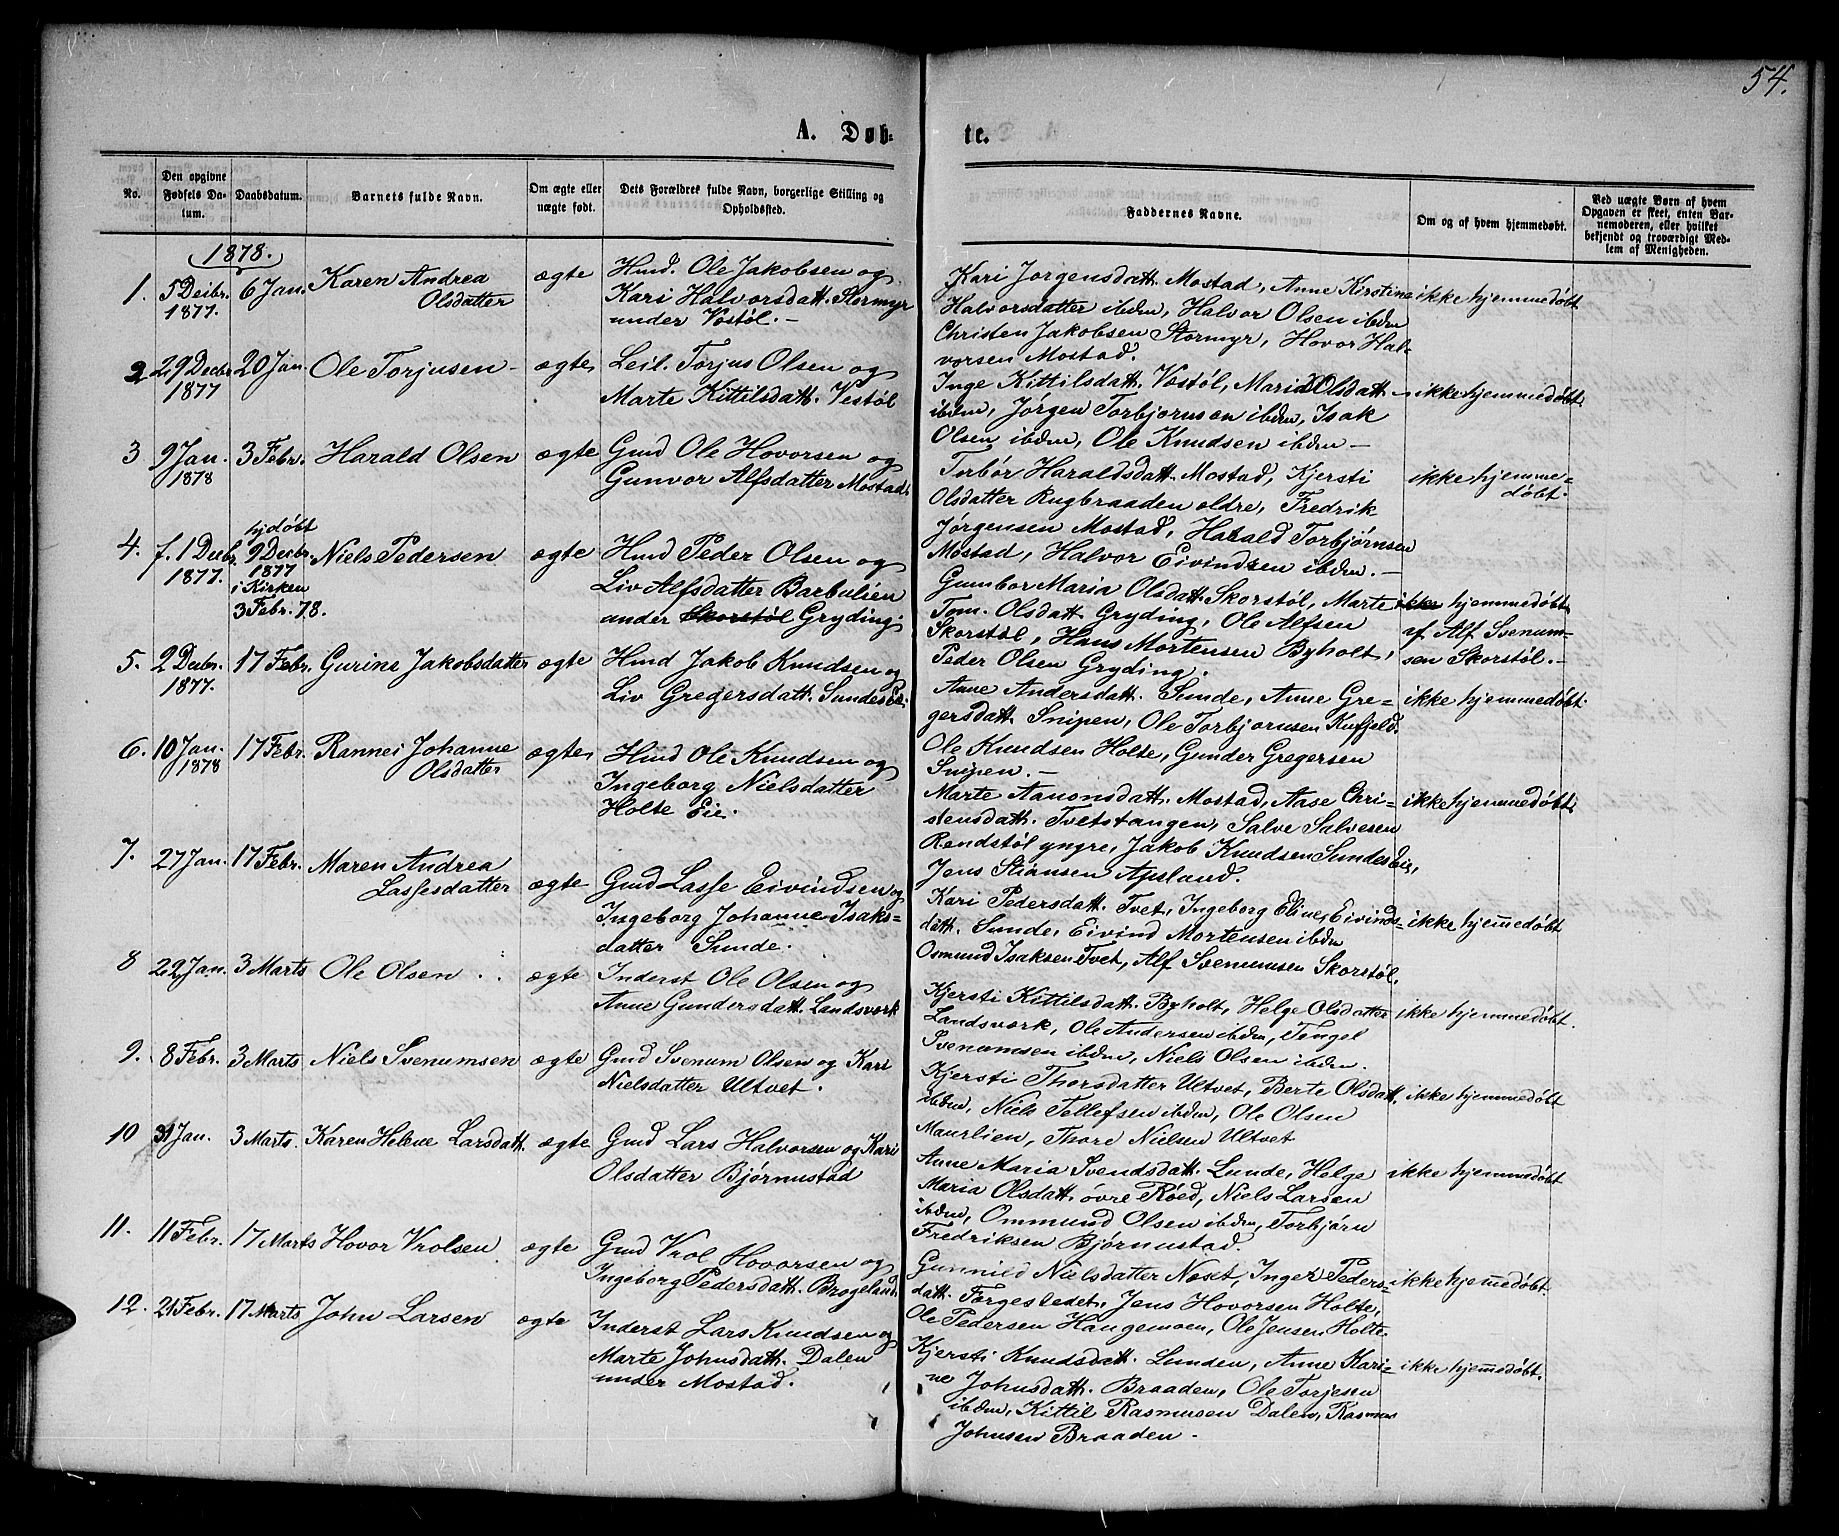 54.
A. Døb- te.
No.
Den opgivne Fødsels Datum.
Daabsdatum.
Barnets fulde Navn.
Om ægte eller uægte født.
Dets Forældres fulde Navn, borgerlige Stilling og Opholdssted.
Faddernes Navne.
Om og af hvem hjemmedøbt.
Ved uægte Børn af hvem Opgaven er skeet, enten Barnemoderen, eller hvilket bekjendt og troværdigt Medlem af Menigheden.
1878.
1. 5 Decbr. 1877. 6 Jan. Karen Andrea Olsdatter ægte
Hmd. Ole Jakobsen og
Kari Halvorsdatt. Stormyr
under Vestøl. –
Kari Jørgensdatt. Mostad, Anne Kirstine
Halvorsdatter ibdm, Halvor Olsen ibdm
Christen Jakobsen Stormyr, Hovor Hal-
vorsen Mostad.
ikke hjemmedøbt
2 29 Decbr 1877 20 Jan. Ole Torjusen – ægte
Leil. Torjus Olsen og
Marte Kittilsdatt. Vestøl
Inge Kittilsdatt. Vestøl, Maria Olsdatt.
ibdm, Jørgen Torbjornsen ibdm, Isak
Olsen ibdm, Ole Knudsen ibdm –
ikke hjemmedøbt.
3 9 Jan. 1878 3 Febr. Harald Olsen ægte
Gmd Ole Hovorsen og
Gunvor Alfsdatter Mostad.
Torbor Haraldsdatt. Mostad, Kjersti
Olsdatter Rugbraaden oldre, Fredrik
Jørgensen Mostad, Harald Torbjørnsen
Mostad, Halvor Eivindsen ibdm. –
ikke hjemme-
døbt.
4. f. 1 Decbr. 1877. hjdøbt 9 Decbr. 1877 i Kirken 3 Febr. 78. Niels Pedersen ægte
Hmd Peder Olsen og
Liv Alfsdatter Barbulien
under Skorstøl Gryding.
Gumbor Maria Olsdatt. Skorstøl, Marte
Tom. Olsdatt Gryding, Ole Alfsen
Skorstøl, Hans Mortensen Byholt,
Peder Olsen Gryding.
ikke hjemmedøbt
af Alf Svenum-
sen Skorstøl. –
5. 2 Decbr. 1877. 17 Febr. Gurine Jakobsdatter ægte
Hmd Jakob Knudsen og
Liv Gregersdatt. Sundes Eie
Anne Andersdatt. Sunde, Anne Gre-
gersdatt Snipen, Ole Torbjornsen
Ole Knudsen Holte, Gunder Gregersen
Snipen. –
ikke hjemmedøbt.
6. 10 Jan. 1878 17 Febr. Rannei Johanne Olsdatter ægte
Hmd Ole Knudsen og
Ingeborg Nielsdatter
Holte Eie.
Marte Aanonsdatt. Mostad, Aase Chri-
stensdatt. Tvetstangen, Salve Salvesen
Rendstøl yngre, Jakob Knudsen Sundes Eie,
Jens Stiansen Apsland.
ikke hjemmedøbt
7. 27 Jan. 17 Febr. Maren Andrea Lassesdatter ægte
Gmd Lasse Eivindsen og
Ingeborg Johanne Isaks-
datter Sunde.
Kari Pedersdatt. Tvet, Ingeborg Eline Eivinds-
datt. Sunde, Eivind Mortensen ibdm
Osmund Isaksen Tvet, Alf Svenumsen Skorstøl.
ikke hjem̄edøbt
8 22 Jan. 3 Marts Ole Olsen ægte
Inderst Ole Olsen og
Anne Gundersdatt. Landsverk
Kjersti Kittilsdatt. Byholt, Helge Olsdatter
Landsverk, Ole Andersen ibdm, Tengel
Svenumsen ibdm, Niels Olsen ibdm.
ikke hjemmedøbt.
9. 8 Febr. 3 Marts Niels Svenumsen ægte
Gmd Svenum Olsen og Kari
Nielsdatter Ultvet.
Kjersti Thorsdatter Ultvet, Berte Olsdatt.
ibdm, Niels Tellefsen ibdm, Ole Olsen
Maurlien, Thore Nielsen Ultvet
ikke hjemmedøbt
10 31 Jan. 3 Marts. Karen Helene Larsdatt. ægte
Gmd Lars Halvorsen og Kari
Olsdatter Bjørnustad
Anne Maria Svendsdatt. Lunde, Helge
Maria Olsdatt. øvre Røed, Niels Larsen
ibdm, Ommund Olsen ibdm, Torbjørn
Fredriksen Bjørnustad.
ikke hjemmedøbt
11. 11 Febr. 17 Marts Hovor Vrolsen ægte
Gmd Vrol Hovorsen og
Ingeborg Pedersdatt. Brogeland
Gunnild Nielsdatter Neset, Inger Peders-
datt. Forgestedet, Jens Hovorsen Holte,
Ole Pedersen Haugemoen, Ole Jensen Holte.
ikke hjem̄edøbt.
12. 21 Febr. 17 Marts John Larsen ægte
Inderst Lars Knudsen og
Marte Johnsdatt. Dalen
under Mostad.
Kjersti Knudsdatt. Lunden, Anne Kari-
ne Johnsdatt. Braaden, Ole Torjesen
ibdm, Kittil Rasmusen Dalen, Rasmus
Johnsen Braaden –
ikke hjem̄edøbt.